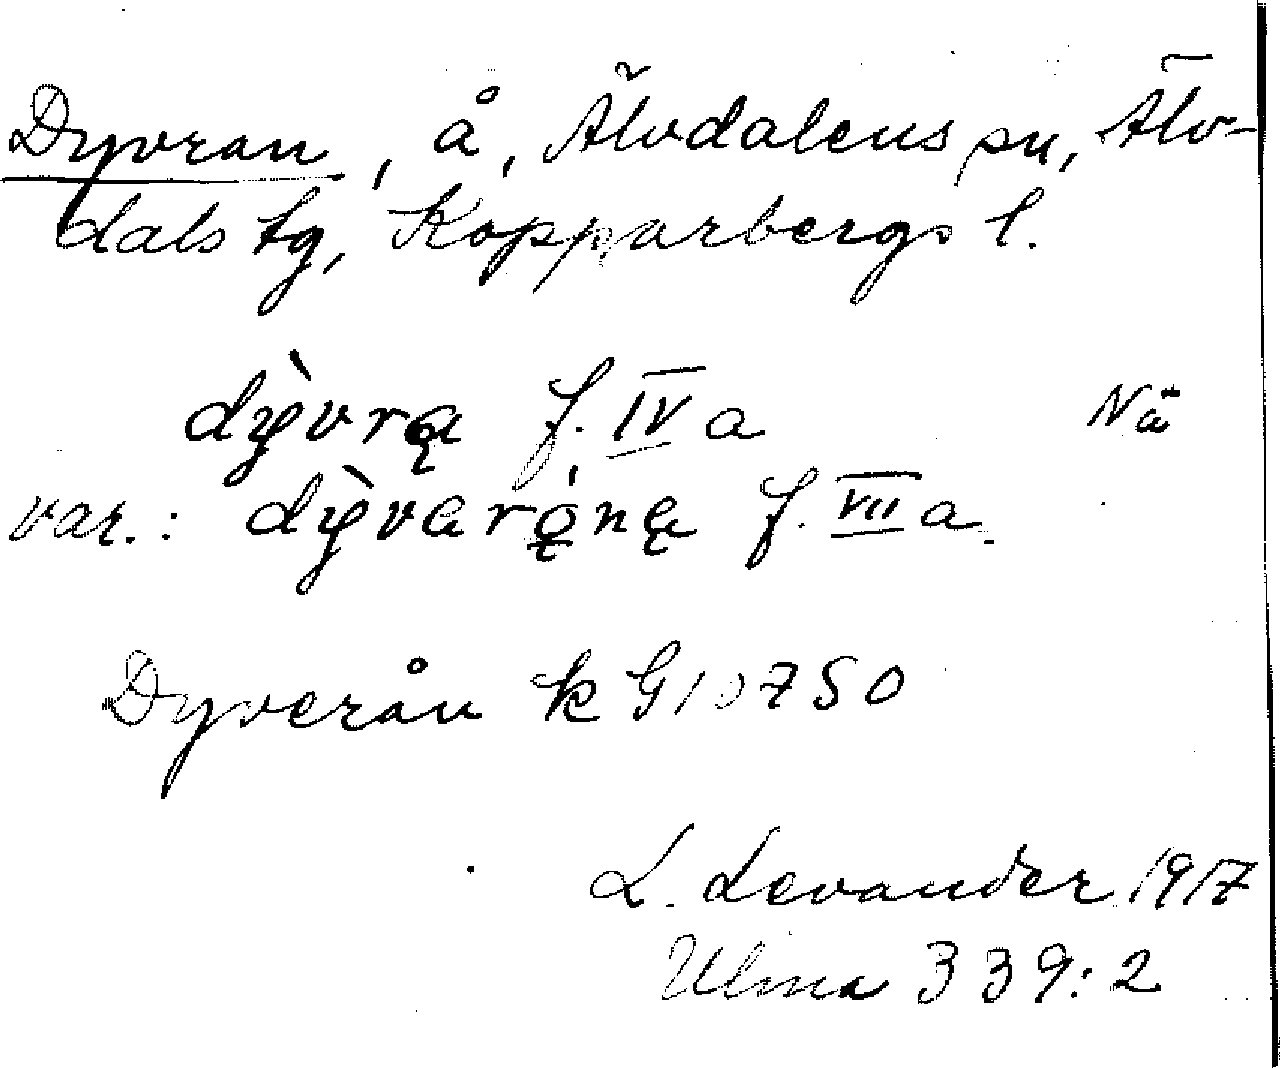 Dyvran, å, Älvdalens sn, Älv-
dals tg, Kopparbergs l.
dỳ̨vrą f. IV a Nä
var.: dỳ̨varǫ́ną f. VII a.
Dyverån k G10750
L. Levander 1917
Ulma 339:2